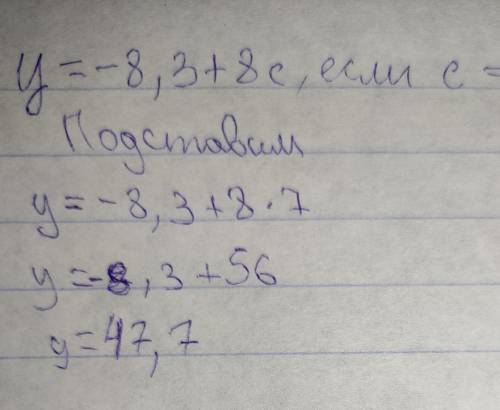 y = -8,3 + 8c, если c =
Подставим
y = -8,3 + 8 · 7
y = -8,3 + 56
y = 47,7